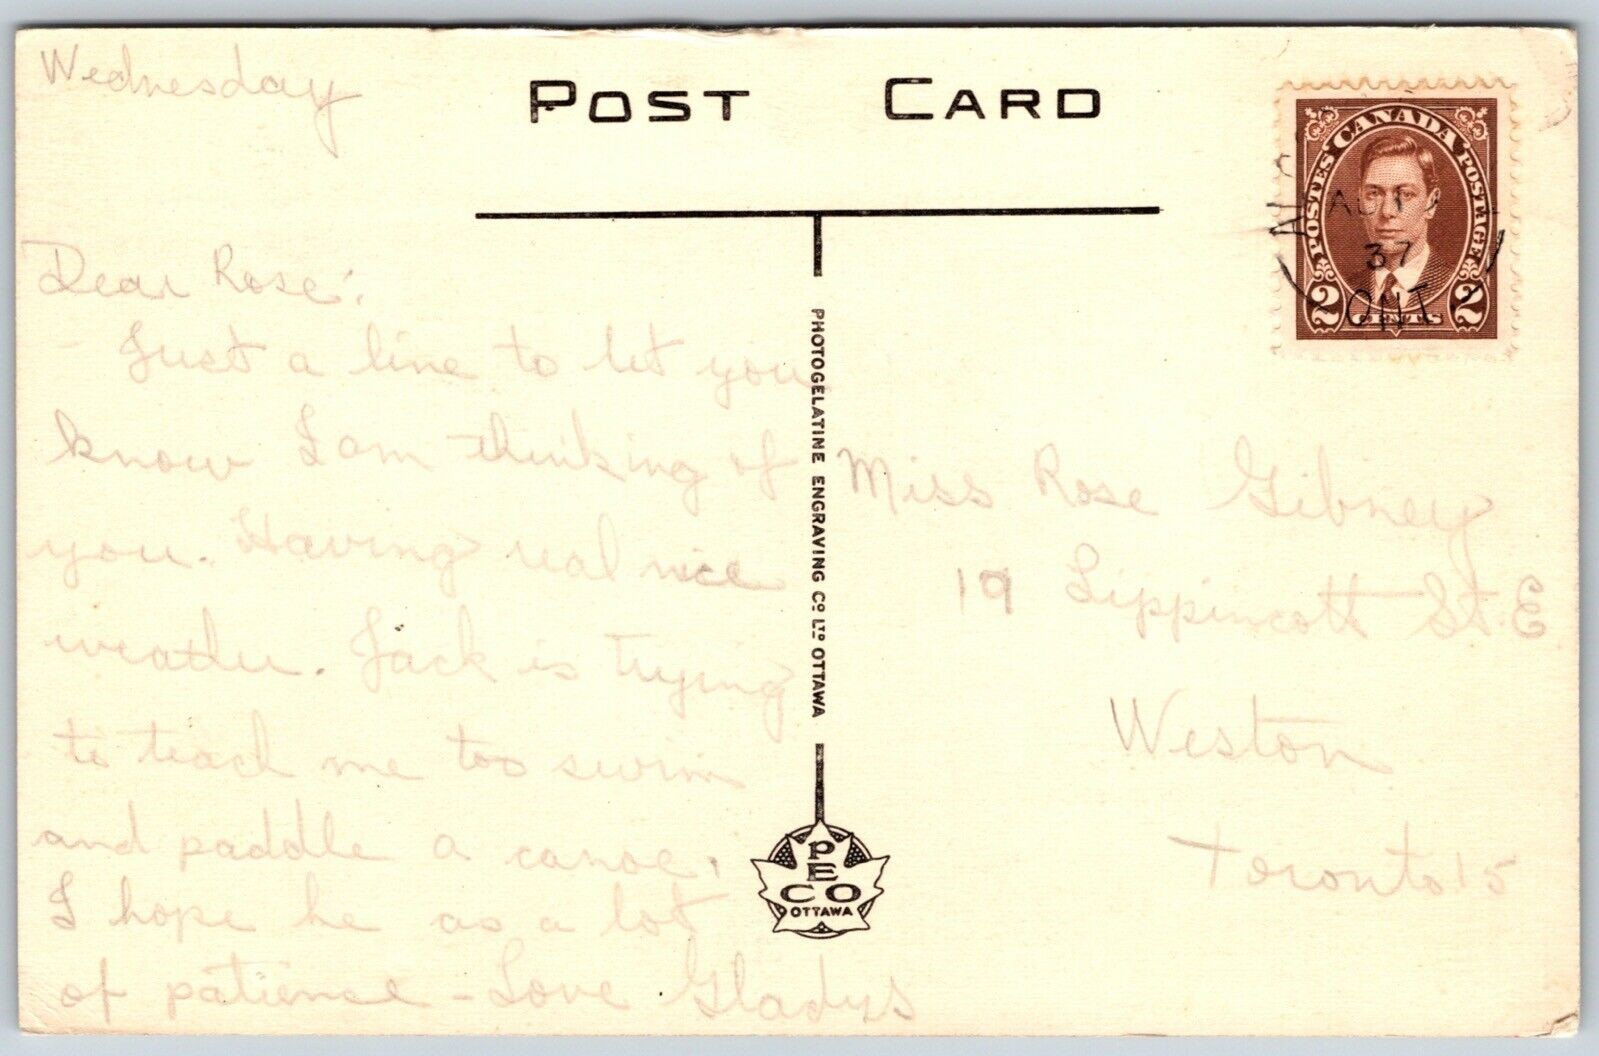 Wednesday
POST CARD
Dear Rose:
Just a line to let you
know I am thinking of
you. Having real nice
weather. Jack is trying
to teach me too swim
and paddle a canoe.
I hope he as a lot
of patience - Love Gladys
PHOTOGELATINE ENGRAVING CO LTD OTTAWA
PECO
OTTAWA
CANADA
POSTES POSTAGE
2 CENTS 2
37
ONT.
Miss Rose Gibney
19 Lippincott St. E
Weston
Toronto 15